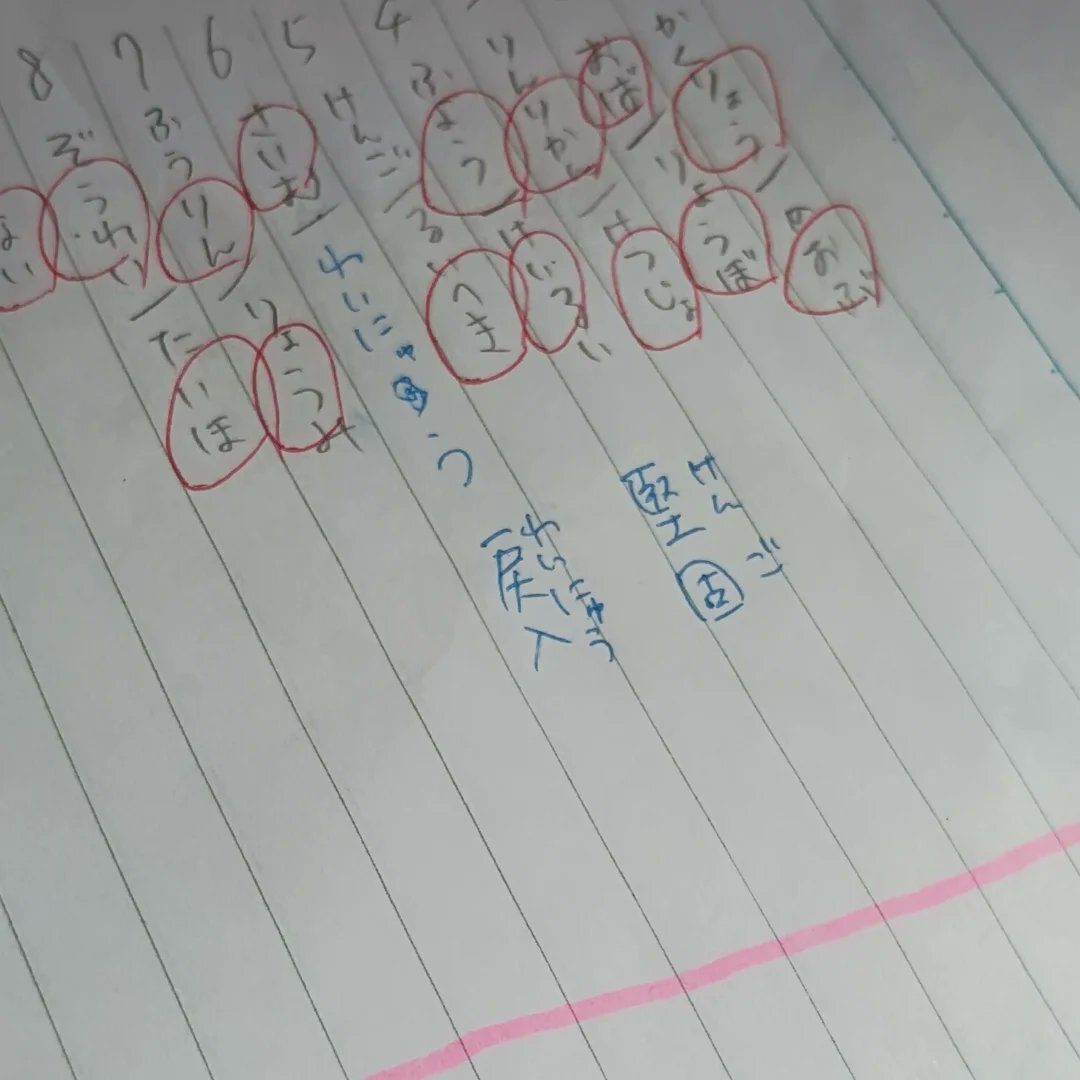 かくりょう/めおぶ
おば/りょうぼ
りんりかん/けつじょ
4 ふよう/けいるい
5 けんご/るいへき
6 さいむ/れいにゅう
7 ふうりん/りょうみ
8 ぞうわい/たいほ
堅固 けんご
戻入 れいにゅう